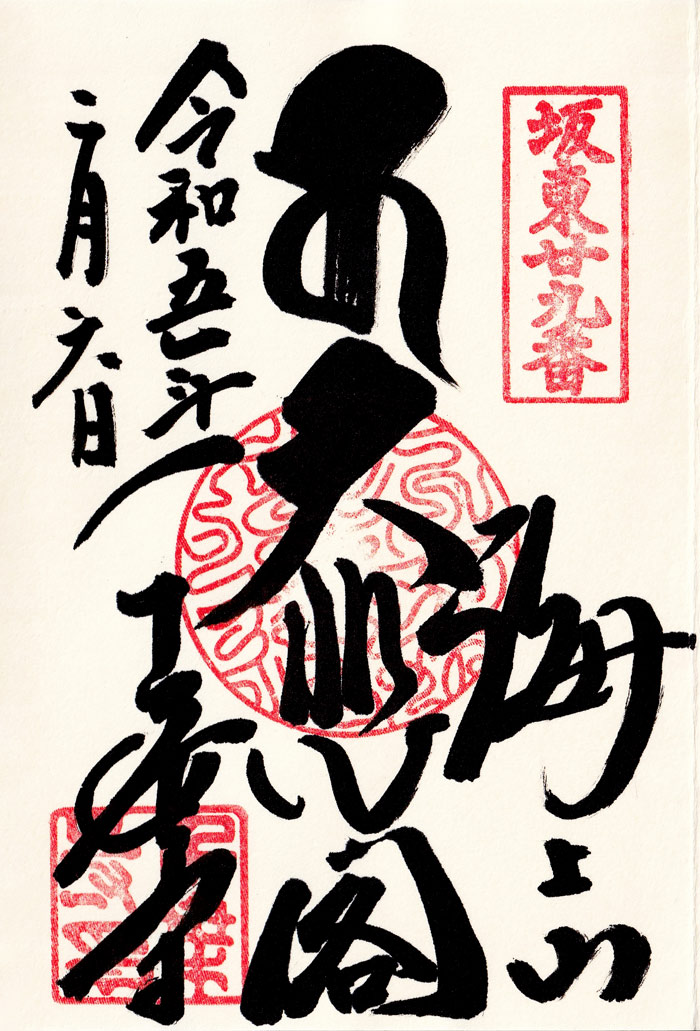 坂東廿九番
海上山
大悲閣
千葉寺
令和五年
二月六日